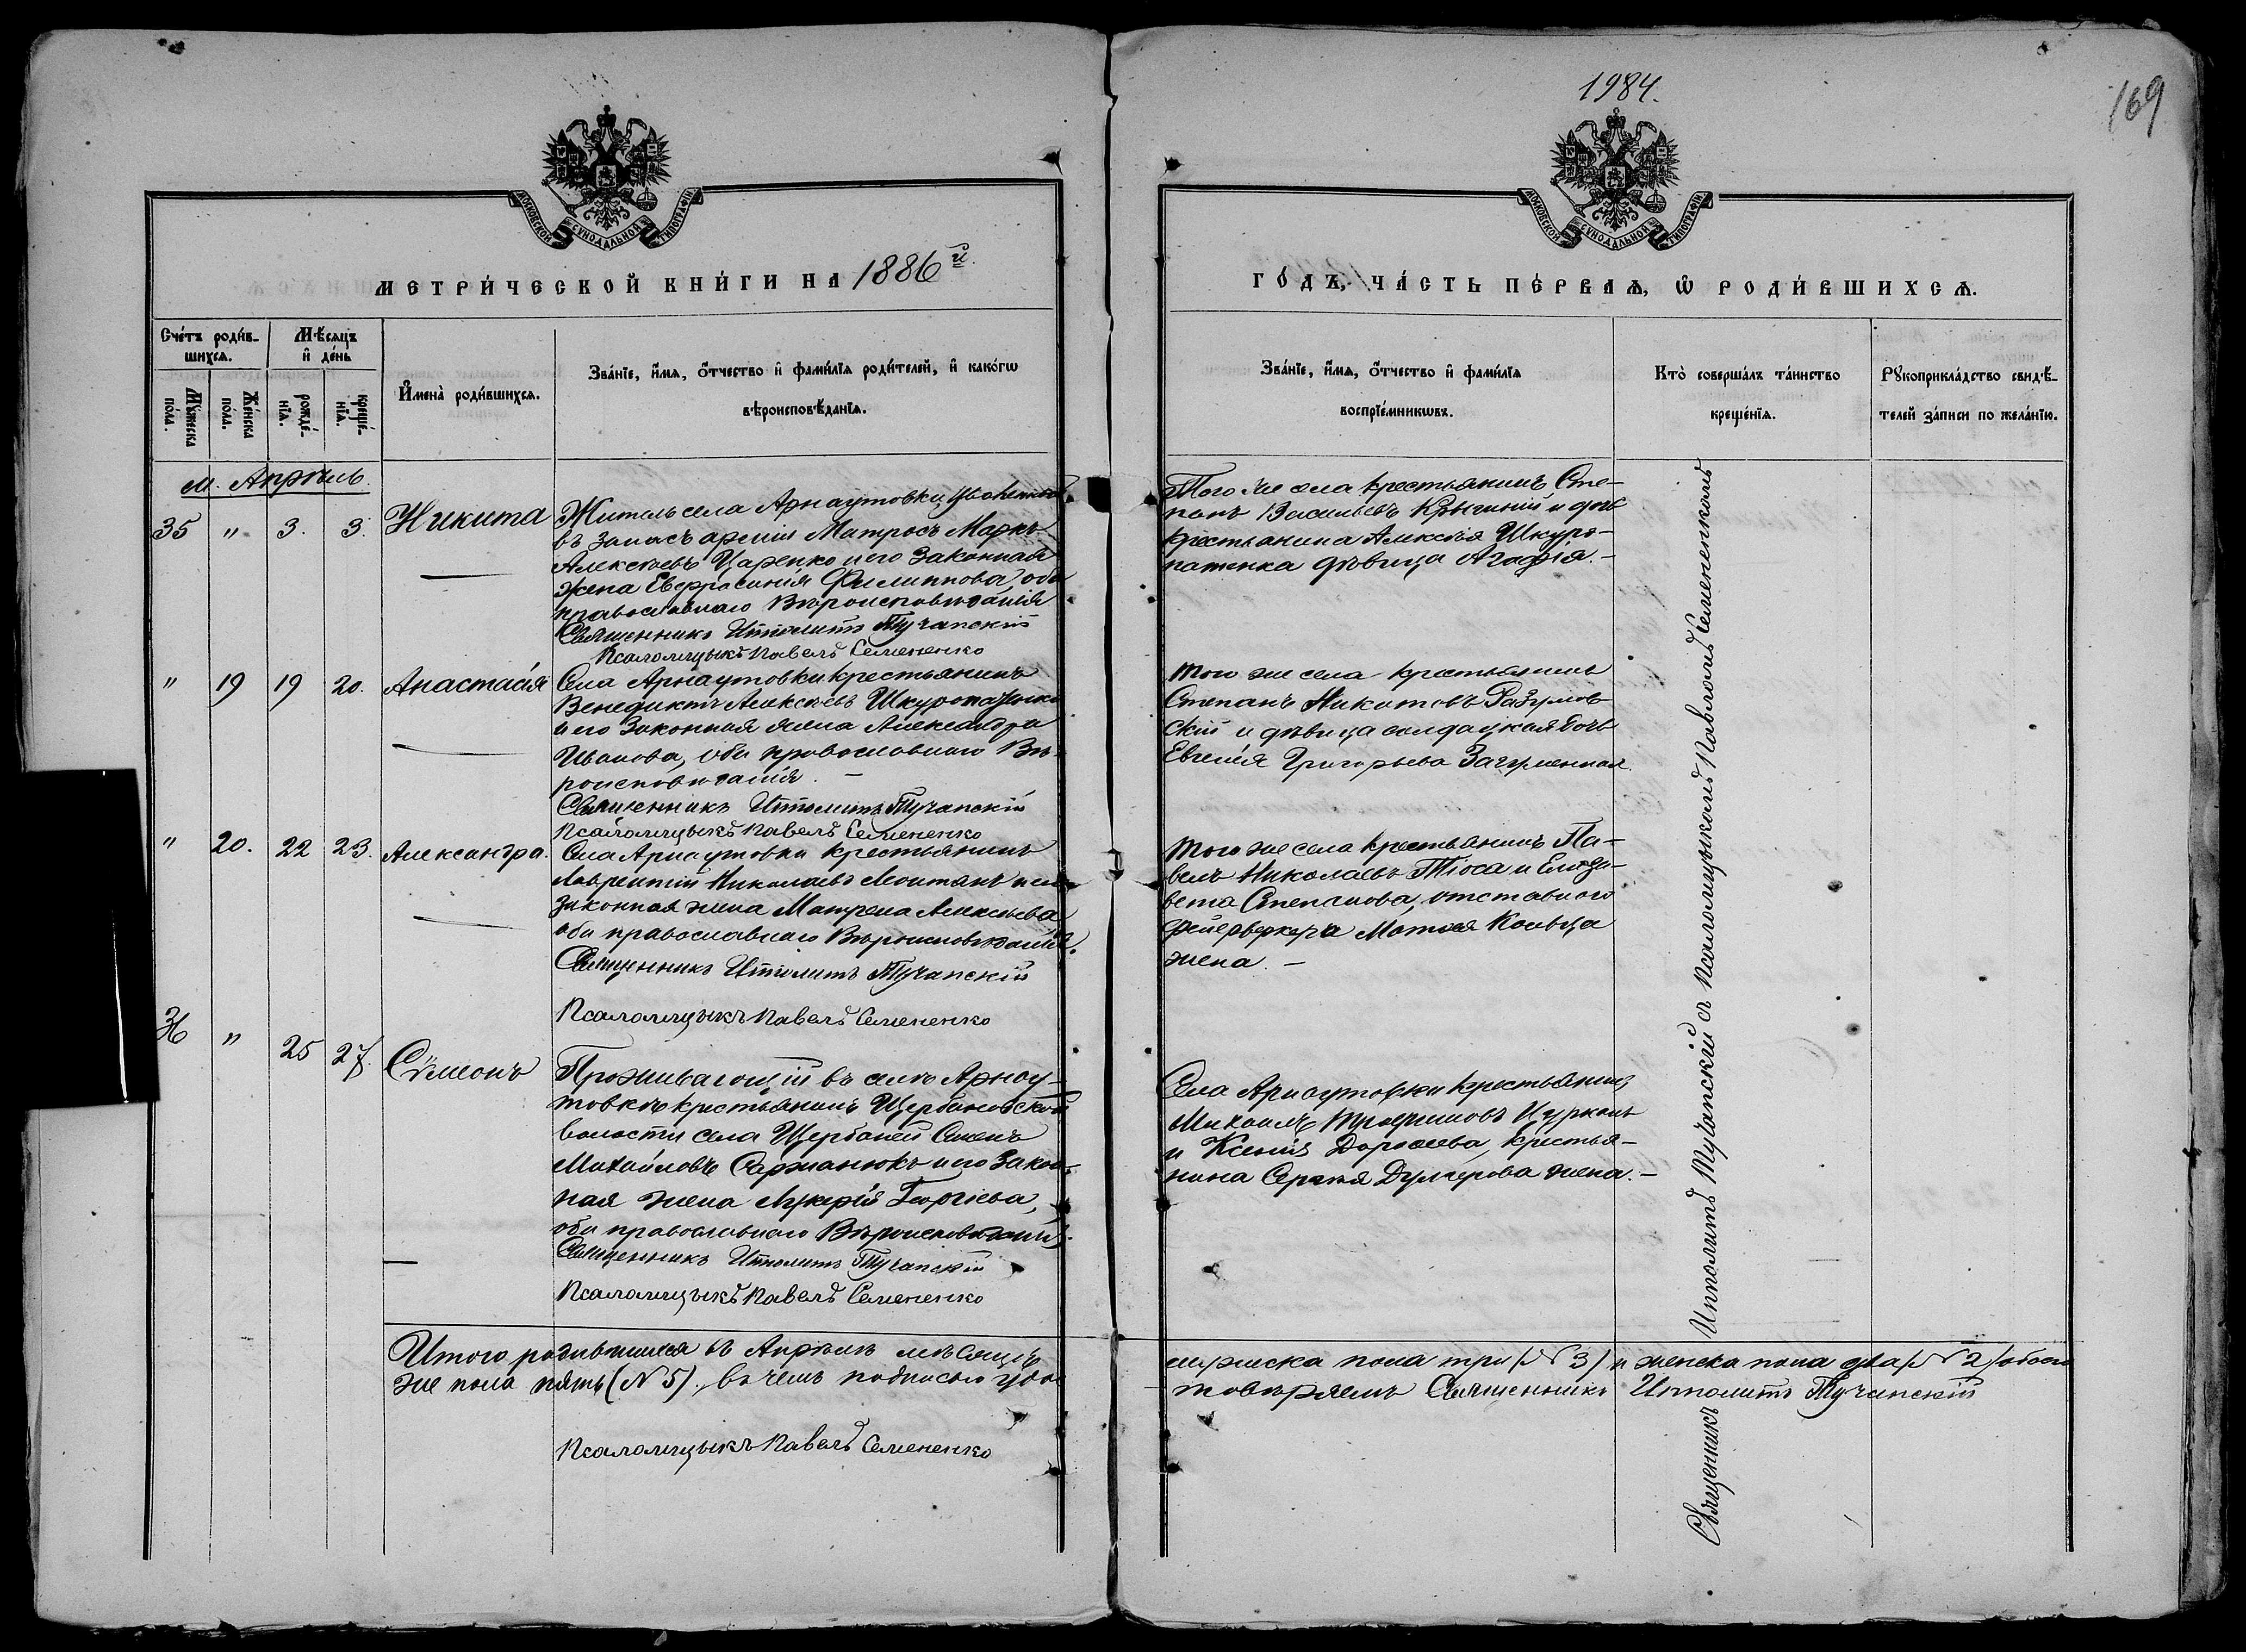 1984.
169
МОСКОВСКОЙ СУНОДАЛЬНОЙ ТИПОГРАФІИ
МОСКОВСКОЙ СУНОДАЛЬНОЙ ТИПОГРАФІИ
МЕТРИ́ЧЕСКОЙ КНИ́ГИ НА 1886й
ГО́ДЪ, ЧА́СТЬ ПЕ́РВАѦ, Ѡ РОДИ́ВШИХСѦ.
Сче́тъ роди́в-
шихсѧ.
Мꙋ́жеска
по́ла.
Же́нска
по́ла.
Мѣ́сѧцъ
и҆ де́нь
рожде́-
нїѧ.
креще́-
нїѧ.
И҆мена̀ роди́вшихсѧ.
Зва́нїе, и҆́мѧ, ѻ҆́тчество и҆ фами́лїѧ роди́телей, и҆ како́гѡ
вѣроисповѣ́данїѧ.
Зва́нїе, и҆́мѧ, ѻ҆́тчество и҆ фами́лїѧ
воспрїе́мникѡвъ.
Кто̀ соверша́лъ та́инство
креще́нїѧ.
Рꙋкоприкла́дство свидѣ́-
телей за́писи по жела́нїю.
м. Апрѣль
35 " 3. 3. Никита
Житель села Арнаутовки уволенный
въ запасъ арміи Матросъ Маркъ
Алексѣевъ Царенко и его законная
жена Евфросинія Филиппова, оба
православнаго Вѣроисповѣданія
Священникъ Ипполитъ Тучапскій
Псаломщыкъ Павелъ Семененко
Того же села крестьянинъ Сте-
панъ Васильевъ и дочь
крестьянина Алексѣя Шкуро-
патенка дѣвица Агафія.-
" 19 19 20. Анастасія
Села Арнаутовки крестьянинъ
Венедиктъ Алексѣевъ Шкуропатенко
и его законная жена Александра
Иванова, оба православнаго Вѣ-
роисповѣданія. -
Священникъ Ипполитъ Тучапскій
Псаломщыкъ Павелъ Семененко
того же села крестьянинъ
Степанъ Никитовъ Разумов-
скій и дѣвица солдацкая дочь
Евгенія Григорьева
" 20. 22 23. Александра.
Села Арнаутовки крестьянинъ
Лаврентій Николаевъ и его
законная жена Матрена Алексѣева
оба православнаго Вѣроисповѣданія.
Священникъ Ипполитъ Тучапскій
Псаломщыкъ Павелъ Семененко
того же села крестьянинъ Па-
велъ Николаевъ и Елиза-
вета Степанова, отставного
фейерверкера Матѳея Кольца
жена. -
36 " 25 27. Сѵмеонъ
Проживающій въ селѣ Арнау-
товкѣ крестьянинъ Щербановской
волости села Щербаней Семенъ
Михайловъ Саржанюкъ и его закон-
ная жена Лукерія Георгіева,
оба православнаго Вѣроисповѣданія.
Священникъ Ипполитъ Тучапскій
Псаломщыкъ Павелъ Семененко
Села Арнаутовки крестьянинъ
Михаилъ Трофимовъ Цурканъ
и Ксенія Дороѳеева, крестья-
нина Сергѣя жена. -
Священникъ Ипполитъ Тучапскій съ псаломщыкомъ Павломъ Семененкомъ
Итого родившихся въ Апрѣлѣ мѣсяцѣ мужеска пола три (№ 3) и женска пола два (№ 2) обоего
же пола пять (№ 5), въ чемъ подписью удос-
товѣряемъ Священникъ Ипполитъ Тучапскій
Псаломщыкъ Павелъ Семененко